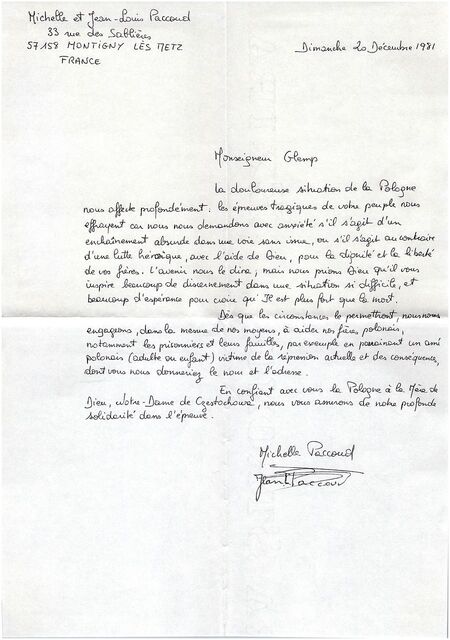 Michelle et Jean-Louis Paccoud
33 rue des Sablières
57158 MONTIGNY LÈS METZ
FRANCE
Dimanche 20 Décembre 1981
Monseigneur Glemp
la douloureuse situation de la Pologne
nous affecte profondément. les épreuves tragiques de votre peuple nous
effrayent car nous nous demandons avec anxiété s'il s'agit d'un
enchaînement absurde dans une voie sans issue, ou s'il s'agit au contraire
d'une lutte héroïque, avec l'aide de Dieu, pour la dignité et la liberté
de vos frères. L'avenir nous le dira ; mais nous prions Dieu qu'il vous
inspire beaucoup de discernement dans une situation si difficile, et
beaucoup d'espérance pour croire qu'Il est plus fort que la mort.
Dès que les circonstances le permettront, nous nous
engageons, dans la mesure de nos moyens, à aider nos frères polonais,
notamment les prisonniers et leurs familles, par exemple en parrainant un ami
polonais (adulte ou enfant) victime de la répression actuelle et des conséquences,
dont vous nous donneriez le nom et l'adresse.
En confiant avec vous la Pologne à la Mère de
Dieu, Notre-Dame de Częstochowa, nous vous assurons de notre profonde
solidarité dans l'épreuve.
Michelle Paccoud
Jean L Paccoud